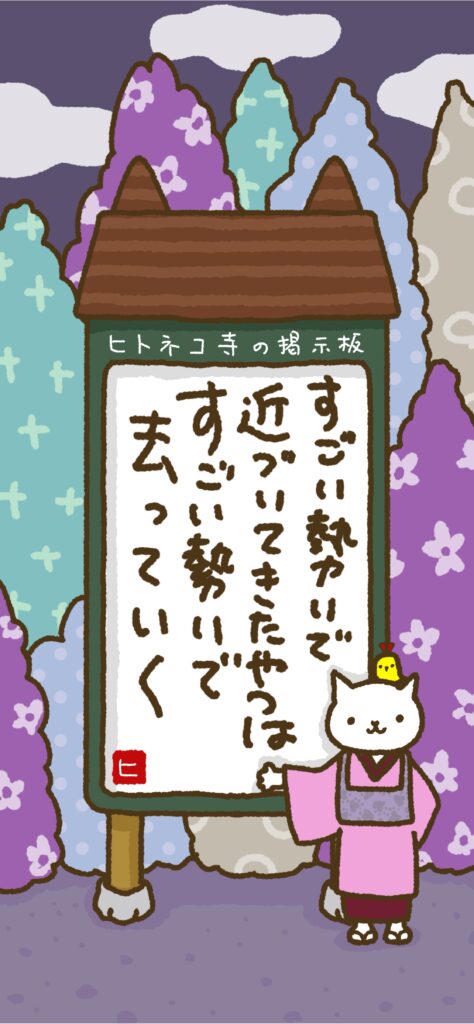 ヒトネコ寺の掲示板
すごい勢いで
近づいてきたやつは
すごい勢いで
去っていく
ヒ